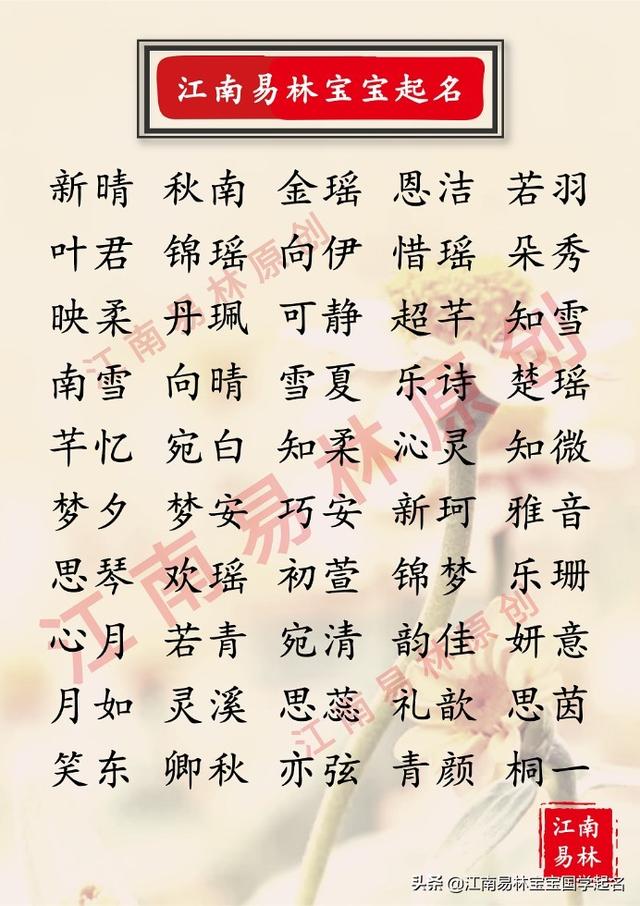 江南易林宝宝起名
新晴 秋南 金瑶 恩洁 若羽
叶君 锦瑶 向伊 惜瑶 朵秀
映柔 丹珮 可静 超芊 知雪
南雪 向晴 雪夏 乐诗 楚瑶
芊忆 宛白 知柔 沁灵 知微
梦夕 梦安 巧安 新珂 雅音
思琴 欢瑶 初萱 锦梦 乐珊
心月 若青 宛清 韵佳 妍意
月如 灵溪 思蕊 礼歆 思茵
笑东 卿秋 亦弦 青颜 桐一
江南易林原创
江南易林原创
江南易林原创
江南
易林
头条 @江南易林宝宝国学起名